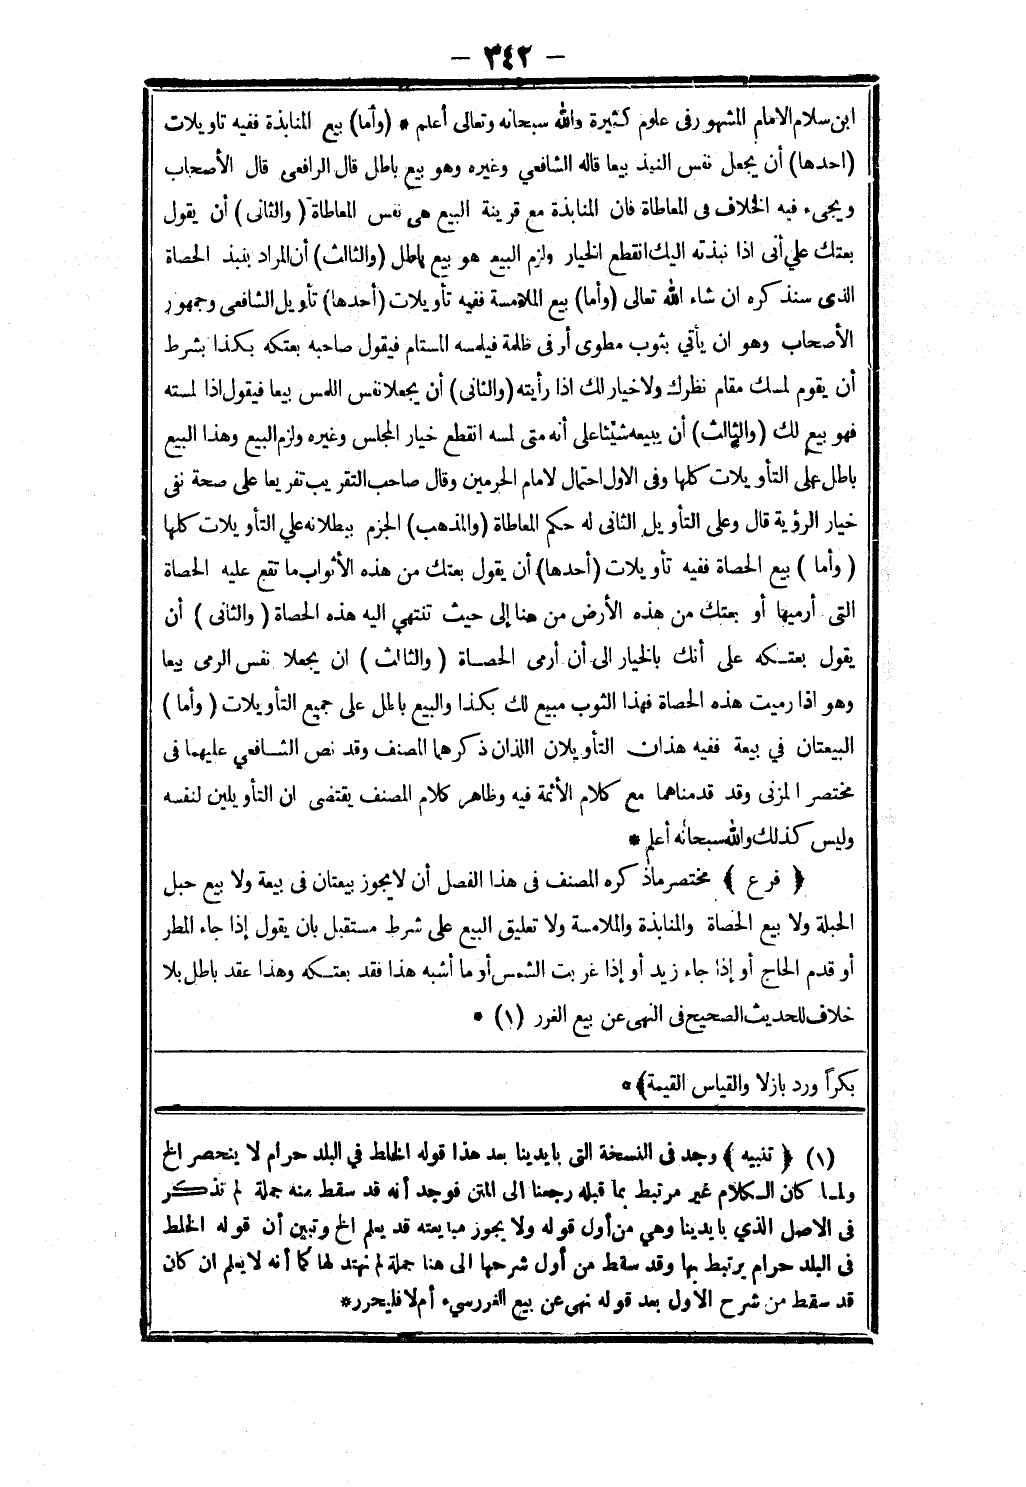 – ٣٤٢ –
ابن سلام الامام المشهور فى علوم كثيرة والله سبحانه وتعالى أعلم * (وأما) بيع المنابذة ففيه تاويلات
(احدها) أن يجعل نفس النبذ بيعا قاله الشافعي وغيره وهو بيع باطل قال الرافعى قال الأصحاب
ويجىء فيه الخلاف فى المعاطاة فان المنابذة مع قرينة البيع هى نفس المعاطاة (والثانى) أن يقول
بعتك علي أنى اذا نبذته اليك انقطع الخيار ولزم البيع هو بيع باطل (والثالث) أن المراد بنبذ الحصاة
الذى سنذكره ان شاء الله تعالى (وأما) بيع الملامسة ففيه تأويلات (أحدها) تأويل الشافعى وجمهور
الأصحاب وهو ان يأتي بثوب مطوى أو فى ظلمة فيلمسه المستام فيقول صاحبه بعتكه بكذا بشرط
أن يقوم لمسك مقام نظرك ولا خيار لك اذا رأيته (والثانى) أن يجعلا نفس اللمس بيعا فيقول اذا لمسته
فهو بيع لك (والثالث) أن يبيعه شيئا على أنه متى لمسه انقطع خيار المجلس وغيره ولزم البيع وهذا البيع
باطل على التأويلات كلها وفى الاول احتمال لامام الحرمين وقال صاحب التقريب تفريعا على صحة نفى
خيار الرؤية قال وعلى التأويل الثانى له حكم المعاطاة (والمذهب) الجزم ببطلانه علي التأويلات كلها
(وأما) بيع الحصاة ففيه تأويلات (أحدها) أن يقول بعتك من هذه الأثواب ما تقع عليه الحصاة
التى أرميها أو بعتك من هذه الأرض من هنا إلى حيث تنتهي اليه هذه الحصاة (والثانى) أن
يقول بعتـكه على أنك بالخيار الى أن أرمى الحصـاة (والثالث) ان يجعلا نفس الرمى بيعا
وهو اذا رميت هذه الحصاة فهذا الثوب مبيع لك بكذا والبيع باطل على جميع التأويلات (وأما)
البيعتان في بيعة ففيه هذان التأويلان اللذان ذكرهما المصنف وقد نص الشـافعي عليهما فى
مختصر المزنى وقد قدمناهما مع كلام الأئمة فيه وظاهر كلام المصنف يقتضى ان التأويلين لنفسه
وليس كذلك والله سبحانه أعلم *
﴿ فرع ﴾ مختصر ماذكره المصنف فى هذا الفصل أن لايجوز بيعتان فى بيعة ولا بيع حبل
الحبلة ولا بيع الحصاة والمنابذة والملامسة ولا تعليق البيع على شرط مستقبل بان يقول إذا جاء المطر
أو قدم الحاج أو إذا جاء زيد أو إذا غربت الشمس أو ما أشبه هذا فقد بعتـكه وهذا عقد باطل بلا
خلاف للحديث الصحيح فى النهى عن بيع الغرر (١) *
بكراً ورد بازلا والقياس القيمة﴾ *
(١) ﴿ تنبيه ﴾ وجد فى النسخة التى بايدينا بعد هذا قوله الخلط في البلد حرام لا ينحصر الخ
ولمـا كان الـكلام غير مرتبط بما قبله رجعنا الى المتن فوجد أنه قد سقط منه جملة لم تذكر
فى الاصل الذي بايدينا وهي من أول قوله ولا يجوز مبايعته قد يعلم الخ وتبين أن قوله الخلط
فى البلد حرام يرتبط بها وقد سقط من أول شرحها الى هنا جملة لم نهتد لها كما أنه لا يعلم ان كان
قد سقط من شرح الاول بعد قوله نهى عن بيع الغرر سيء أم لا فليحرر*